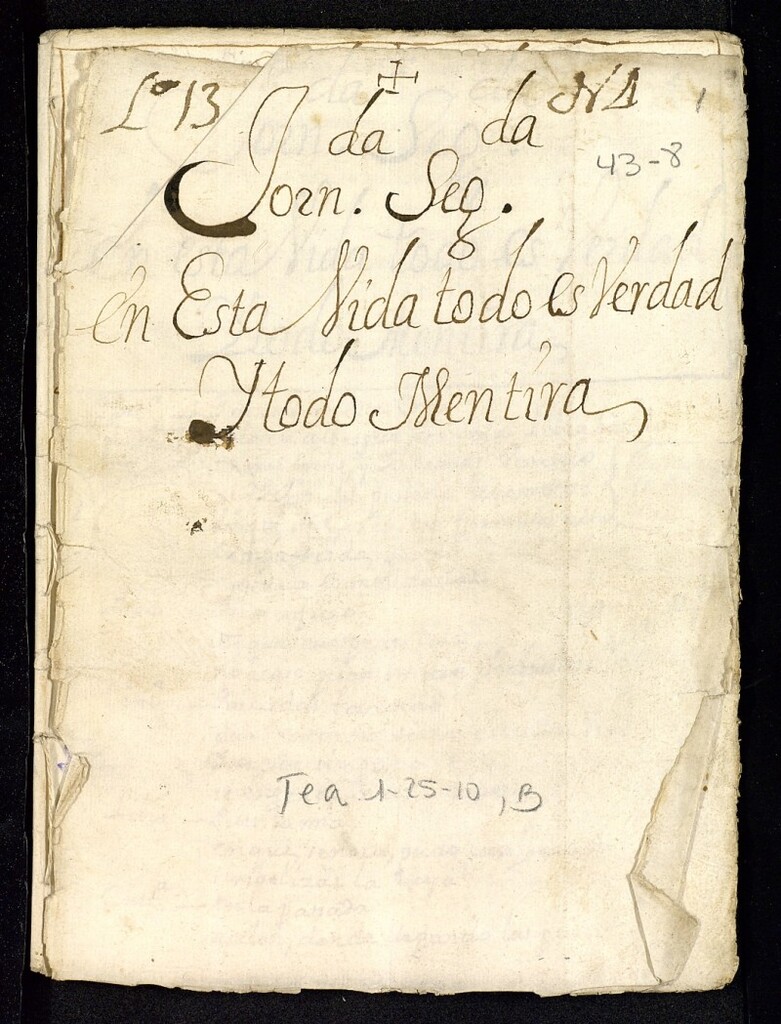 Lº 13
N1
1
43-8
Jorn.da Seg.da
en Esta Vida todo es Verdad
Y todo Mentira
Tea 1-25-10, B